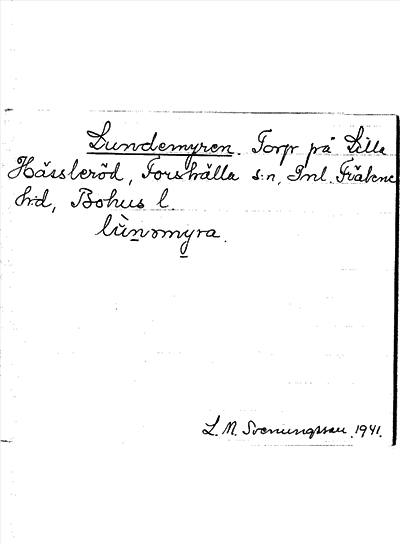 Lundemyren. Torp på Lilla
Hässleröd, Forshälla s:n, Inl. Fräkne
h:d, Bohus l.
lùnəmyra.
L. M. Svenungsson. 1941.